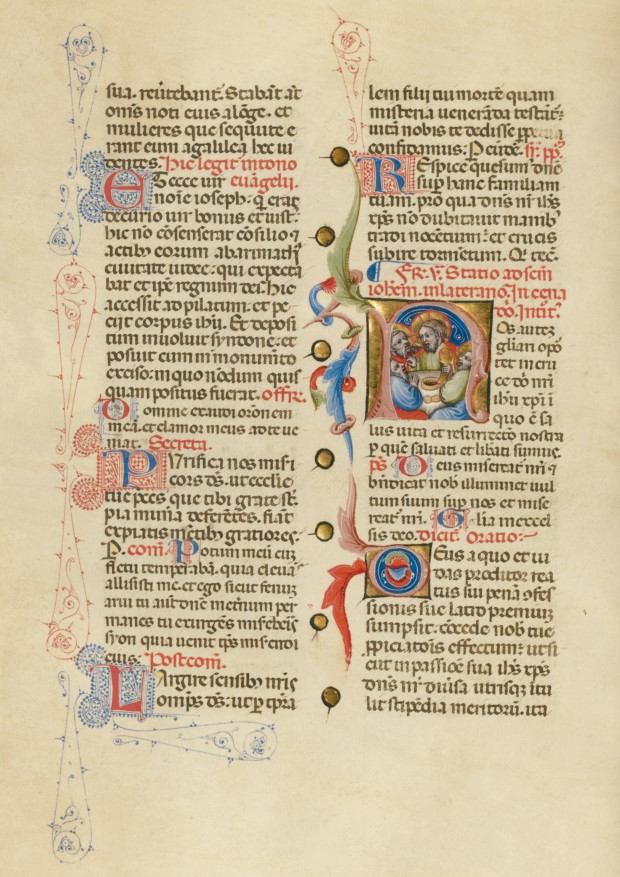 sua. reu̾tebant̾. Stabāt aūt
om̄s noti eius alōge. et
mulieres que sequute e
rant eum agalilea hec ui
dentes. Hic legit̾ in tono
ET ecce uir euāgelii.
noīe ioseph. q̾ erat
decurio uir bonus et iust̾.
hic nō cōsenserat cōsilio ⁊
actib̾ eorum abarimathi
ciuitate iudee. qui expecta
bat et ip̄e regnum dei. hic
accessit ad pilatum. et pe
ciit corpus ih̄u. Et deposi
tum inuoluit syndone. et
posuit eum in monumēto
exciso. in quo nōdum quis
quam positus fuerat. offr̄.
Domine exaudi orōnem
meā. et clamor meus ad te ue
niat. Secreta.
PUrifica nos misi
cors d̄s. ut ecclesie
tue p̄ces que tibi grate sūt
pia mun̄a deferētes. fiāt
expiatis mētib̾ gratiores.
P. com̄. Potum meū cuȝ
fletu temp̄abā. quia eleuās
allisisti me. et ego sicut fenuȝ
arui tu aūt dn̄e ī et̾num per
manes tu exurgēs mis̾eb̾is
syon quia uenit tp̄s mis̾endi
eius. Postcom̄.
LArgire sensib̾ nr̄is
om̄ps d̄s. ut p̱ tp̄ra
lem filii tui mortē quam
misteria ueneranda testāt̾.
uitā nobis te dedisse perpetuā
confidamus. P eūdē. Sr̄ pp̄.
REspice quesum̾ dn̄e
sup̱ hanc familiam
tuam. pro qua dn̄s nr̄ ih̄s
xp̄s nō dubitauit manib̾
tradi nocētium. et crucis
subire tormētum. Q. tec̄.
Fr̄. v. Statio ad scm̄
iohem̄. in laterano. In cena
dn̄i. Introit̾.
NOs autȝ
gl̄iari opō
tet in cru
ce dn̄i nr̄i
ih̄u xp̄i ī
quo ē sa
lus uita et resurrectō nostra
p̱ quē saluati et lib̾ati sumus.
ps̄. Deus misereat̾ nr̄i ⁊
bn̄dicat nob̾ illuminet uul
tum suum sup̱ nos et mise
reat̾ nr̄i. Gl̄ia in excel
sis deo. dicit̾. Oratio.
DEus a quo et iu
das proditor rea
tus sui penā ⁊ ꝯfes
sionis sue latro premium
sumpsit. cōcede nob̾ tue
p̱piciatōis effectum. ut si
cut in passiōe sua ih̄s xp̄s
dn̄s nr̄ diu̾sa utrisqȝ ītu
lit stipēdia meritorū. ita